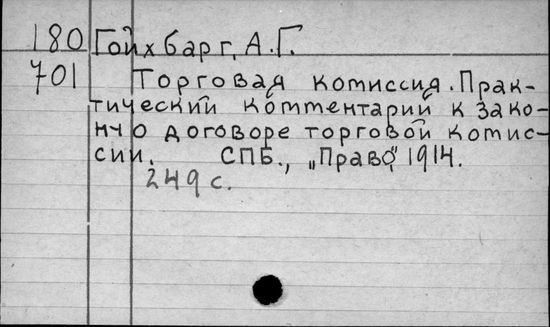 180 Гойхбарг, А.Г.
701 Торговая комиссия. Прак-
тический комментарий к зако-
ну о договоре торговой комис-
сии. СПБ., „Право," 1914.
249 с.